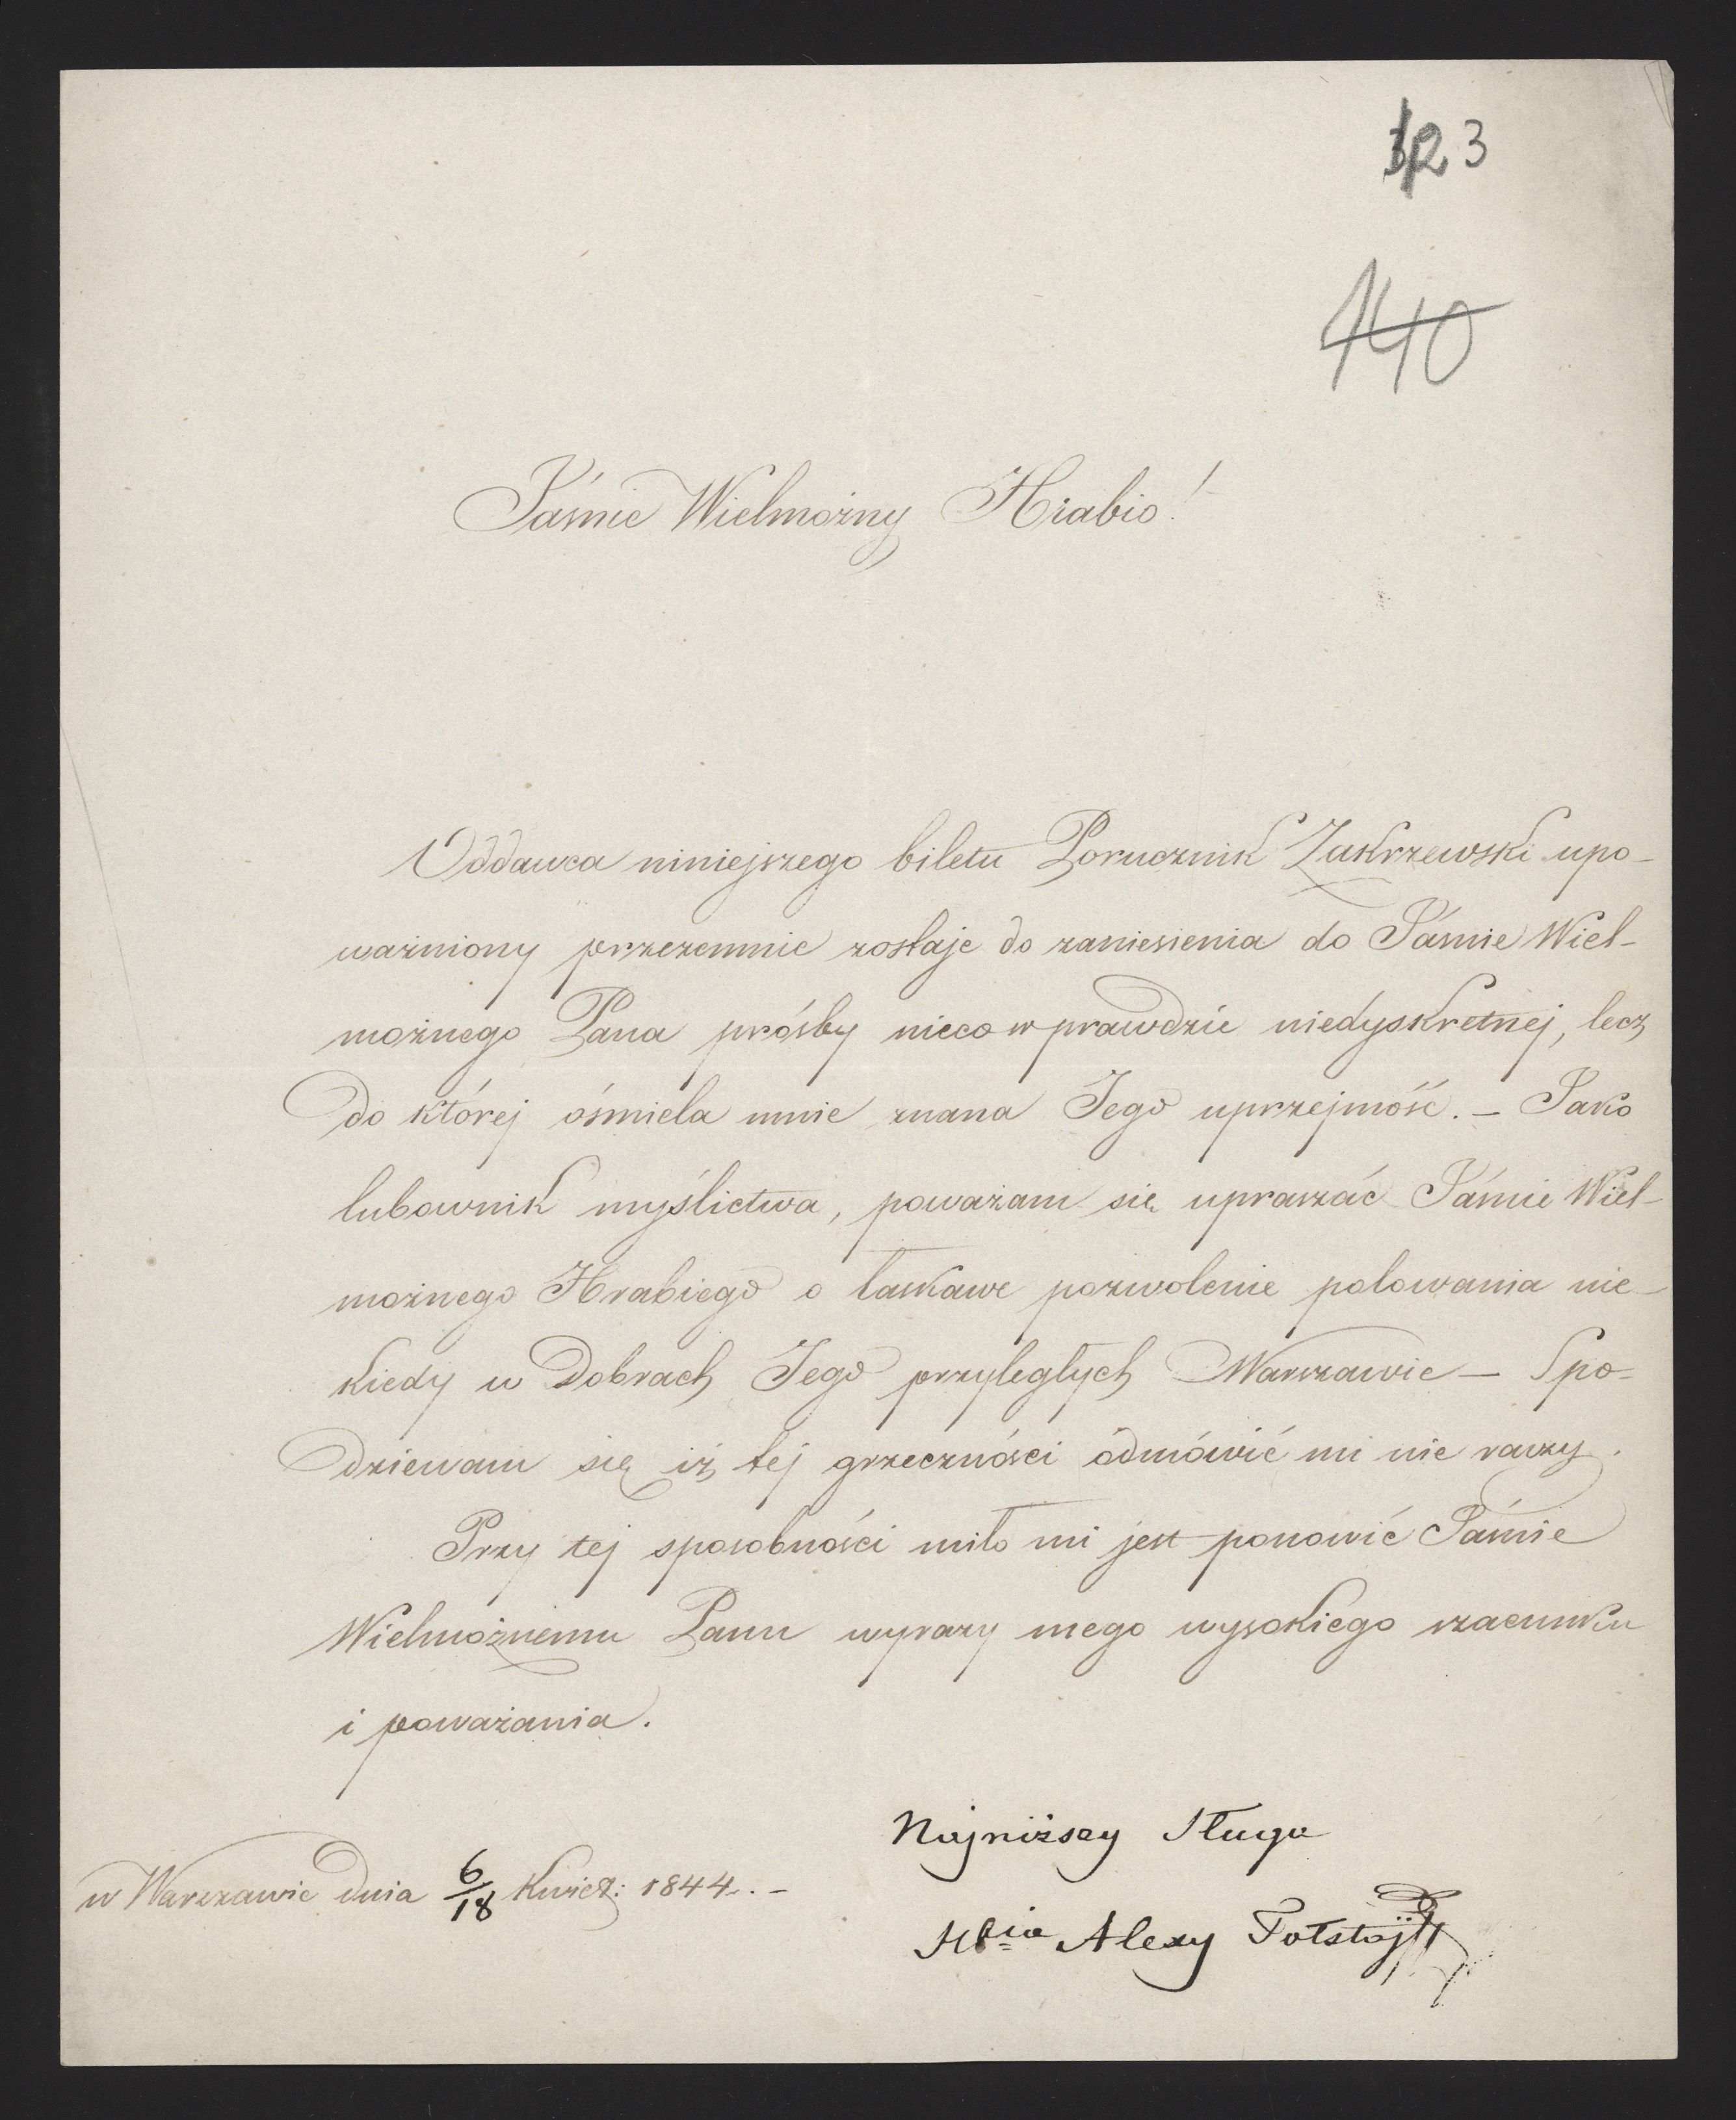 123
140
Jaśnie Wielmożny Hrabio!
Oddawca niniejszego biletu Porucznik Zakrzewski upo-
ważniony przezemnie zostaje do zaniesienia do Jaśnie Wiel-
możnego Pana prósby nieco wprawdzie niedyskretnej, lecz
do której ośmiela mnie znana Jego uprzejmość. – Jako
lubownik myślictwa, poważam się upraszać Jaśnie Wiel-
możnego Hrabiego o łaskawe pozwolenie polowania nie-
kiedy w Dobrach Jego przyległych Warszawie – Spo-
dziewam się iż tej grzeczności odmówić mi nie raczy.
Przy tej sposobności miło mi jest ponowić Jaśnie
Wielmożnemu Panu wyrazy mego wysokiego szacunku
i poważania.
Najniższy Sługa
w Warszawie dnia 6/18 Kwiet: 1844. –
Hbia Alexy Tołstoj